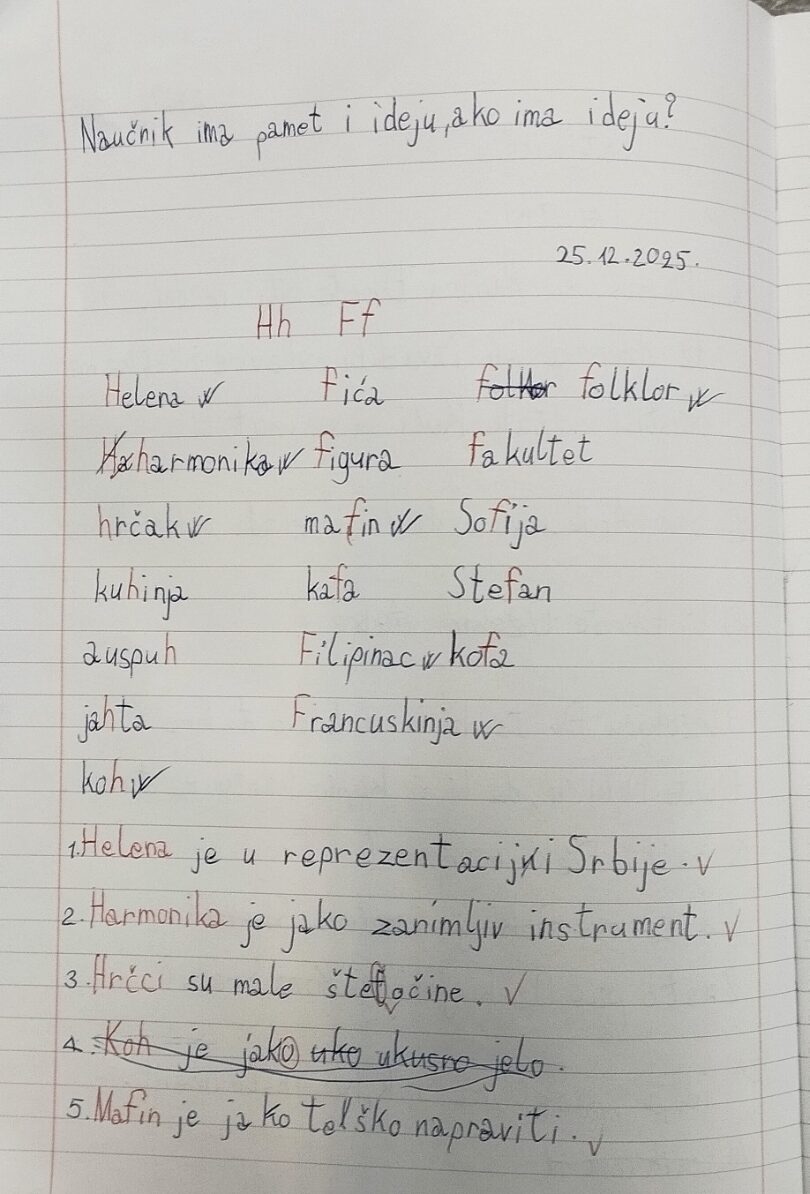 Naučnik ima pamet i ideju, ako ima ideju?
25.12.2025.
Hh Ff
Helena fića folklor
harmonika figura fakultet
hrčak mafin Sofija
kuhinja kafa Stefan
auspuh Filipinac kofa
jahta Francuskinja
koh
1. Helena je u reprezentaciji Srbije.
2. Harmonika je jako zanimljiv instrument.
3. Hrčci su male štetočine.
4. Koh je jako uko ukusno jelo.
5. Mafin je jako teško napraviti.